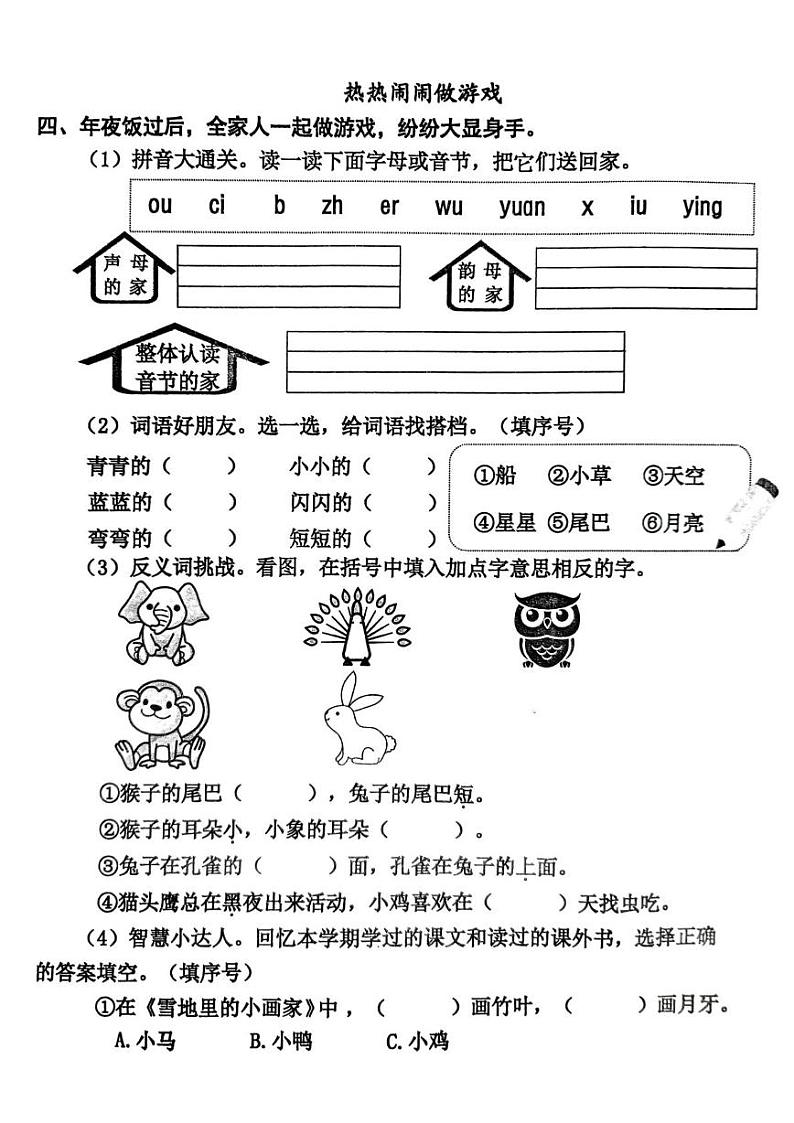 热热闹闹做游戏
四、年夜饭过后，全家人一起做游戏，纷纷大显身手。
（1）拼音大通关。读一读下面字母或音节，把它们送回家。
ou ci b zh er wu yuan x iu ying
声母
的家
韵母
的家
整体认读
音节的家
（2）词语好朋友。选一选，给词语找搭档。（填序号）
青青的（ ） 小小的（ ）
蓝蓝的（ ） 闪闪的（ ）
弯弯的（ ） 短短的（ ）
①船 ②小草 ③天空
④星星 ⑤尾巴 ⑥月亮
（3）反义词挑战。看图，在括号中填入加点字意思相反的字。
①猴子的尾巴（ ），兔子的尾巴短。
②猴子的耳朵小，小象的耳朵（ ）。
③兔子在孔雀的（ ）面，孔雀在兔子的上面。
④猫头鹰总在黑夜出来活动，小鸡喜欢在（ ）天找虫吃。
（4）智慧小达人。回忆本学期学过的课文和读过的课外书，选择正确
的答案填空。（填序号）
①在《雪地里的小画家》中，（ ）画竹叶，（ ）画月牙。
A.小马 B.小鸭 C.小鸡